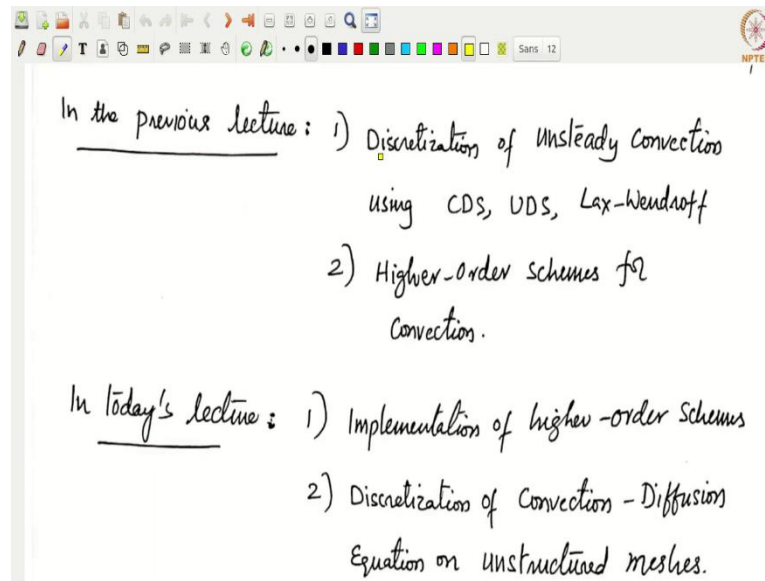 Sans 12
NPTE
In the previous lecture: 1) Discretization of unsteady convection
using CDS, UDS, Lax-Wendroff
2) Higher-order schemes for
Convection.
In today's lecture: 1) Implementation of higher-order schemes
2) Discretization of Convection-Diffusion
Equation on unstructured meshes.